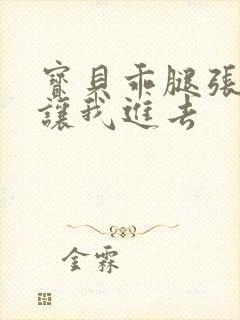 寶貝乖腿張
讓我進去
金霖